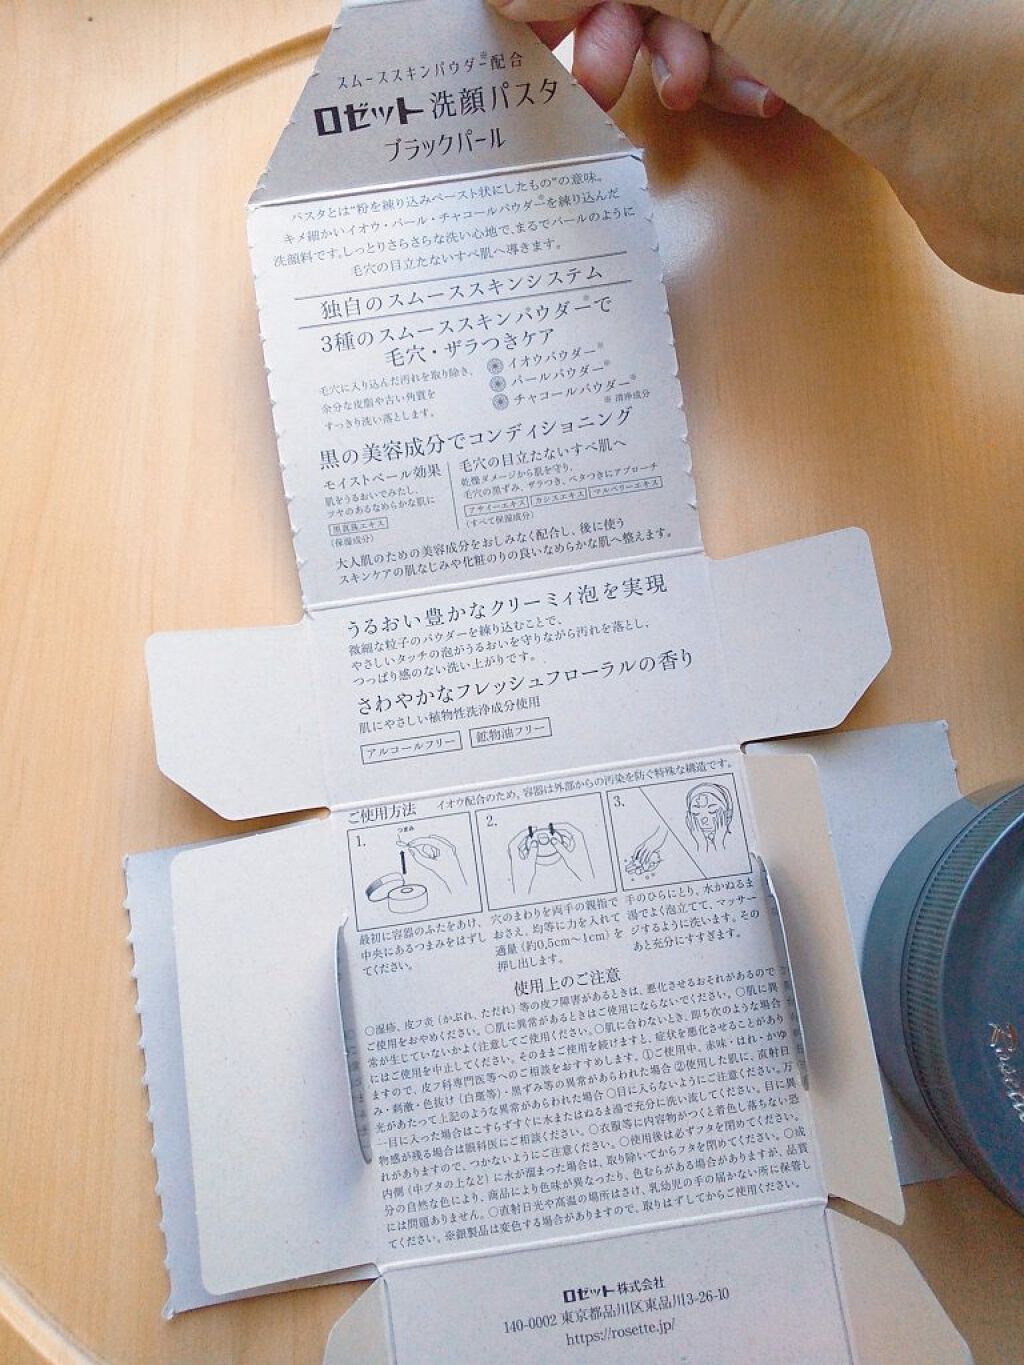 スムーススキンパウダー※配合
ロゼット 洗顔パスタ
ブラックパール
パスタとは"粉を練り込みペースト状にしたもの"の意味。
キメ細かいイオウ・パール・チャコールパウダー※を練り込んだ
洗顔料です。しっとりさらさらな洗い心地で、まるでパールのように
毛穴の目立たないすべ肌へ導きます。
独自のスムーススキンシステム
3種のスムーススキンパウダー※で
毛穴・ザラつきケア
毛穴に入り込んだ汚れを取り除き、
余分な皮脂や古い角質を
すっきり洗い落とします。
イオウパウダー※
パールパウダー※
チャコールパウダー※
※ 清浄成分
黒の美容成分でコンディショニング
モイストベール効果
肌をうるおいでみたし、
ツヤのあるなめらかな肌に
黒真珠エキス
(保湿成分)
毛穴の目立たないすべ肌へ
乾燥ダメージから肌を守り、
毛穴の黒ずみ、ザラつき、ベタつきにアプローチ
アサイーエキス カシスエキス マルベリーエキス
(すべて保湿成分)
大人肌のための美容成分をおしみなく配合し、後に使う
スキンケアの肌なじみや化粧のりの良いなめらかな肌へ整えます。
うるおい豊かなクリーミィ泡を実現
微細な粒子のパウダーを練り込むことで、
やさしいタッチの泡がうるおいを守りながら汚れを落とし、
つっぱり感のない洗い上がりです。
さわやかなフレッシュフローラルの香り
肌にやさしい植物性洗浄成分使用
アルコールフリー 鉱物油フリー
ご使用方法 イオウ配合のため、容器は外部からの汚染を防ぐ特殊な構造です。
1.
つまみ
2.
3.
最初に容器のふたをあけ、
中央にあるつまみをはずし
てください。
穴のまわりを両手の親指で
おさえ、均等に力を入れて
適量(約0.5cm〜1cm)を
押し出します。
手のひらにとり、水かぬるま
湯でよく泡立てて、マッサー
ジするように洗います。その
あと充分にすすぎます。
使用上のご注意
○湿疹、皮フ炎(かぶれ、ただれ)等の皮フ障害があるときは、悪化させるおそれがあるので
ご使用をおやめください。○肌に異常があるときはご使用にならないでください。○肌に異
常が生じていないかよく注意してご使用ください。○肌に合わないとき、即ち次のような場合
にはご使用を中止してください。そのままご使用を続けますと、症状を悪化させることがあり
ますので、皮フ科専門医等へのご相談をおすすめします。①ご使用中、赤味・はれ・かゆ
み・刺激・色抜け(白斑等)・黒ずみ等の異常があらわれた場合 ②使用した肌に、直射日
光があたって上記のような異常があらわれた場合 ○目に入らないようにご注意ください。万
一目に入った場合はこすらずすぐに水またはぬるま湯で充分に洗い流してください。目に異
物感が残る場合は眼科医にご相談ください。○衣服等に内容物がつくと着色し落ちない恐
れがありますので、つかないようにご注意ください。○使用後は必ずフタを閉めてください。
内側(中ブタの上など)に水が溜まった場合は、取り除いてからフタを閉めてください。○成
分の自然な色により、商品により色味が異なったり、色むらがある場合がありますが、品質
には問題ありません。○直射日光や高温の場所はさけ、乳幼児の手の届かない所に保管し
てください。※銀製品は変色する場合がありますので、取りはずしてからご使用ください。
ロゼット株式会社
140-0002 東京都品川区東品川3-26-10
https://rosette.jp/
Rosette